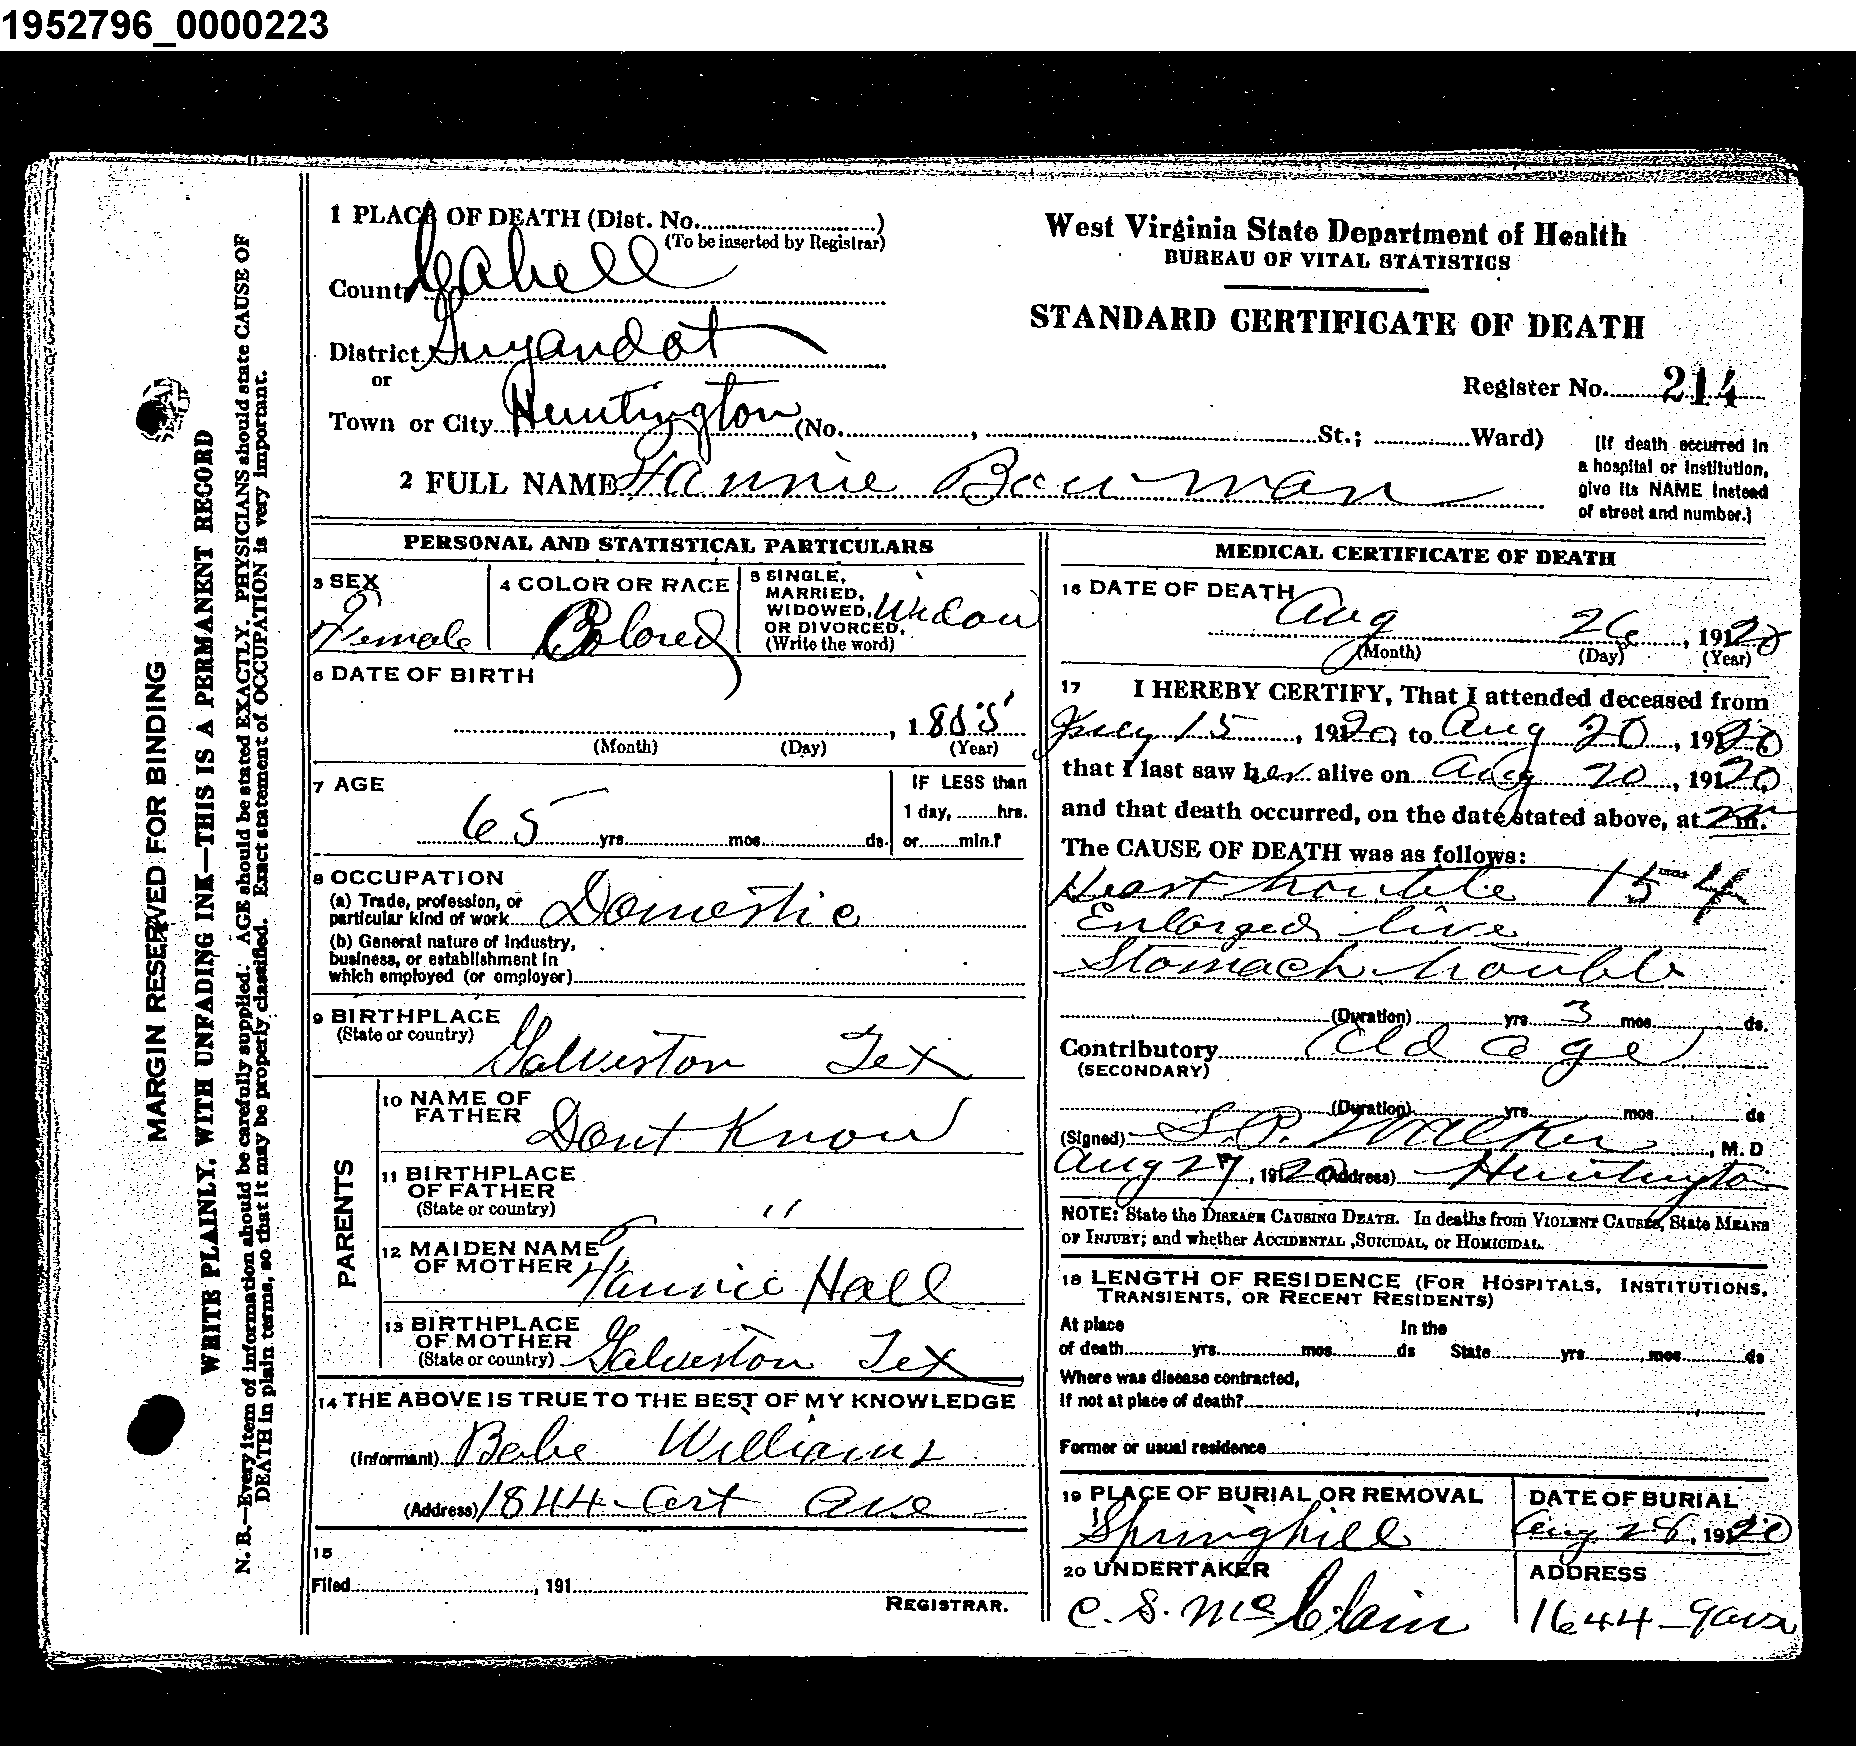 1952796_0000223
1 PLACE OF DEATH (Dist. No. )
(To be inserted by Registrar)
County Cabell
District Guyandot
or
Town or City Huntington (No. , St.; Ward)
2 FULL NAME Fannie Bowman
West Virginia State Department of Health
BUREAU OF VITAL STATISTICS
STANDARD CERTIFICATE OF DEATH
Register No. 214
(If death occurred in
a hospital or institution,
give its NAME instead
of street and number.)
MARGIN RESERVED FOR BINDING
WRITE PLAINLY, WITH UNFADING INK—THIS IS A PERMANENT RECORD
N. B.—Every item of information should be carefully supplied. AGE should be stated EXACTLY. PHYSICIANS should state CAUSE OF
DEATH in plain terms, so that it may be properly classified. Exact statement of OCCUPATION is very important.
PERSONAL AND STATISTICAL PARTICULARS
3 SEX
Female
4 COLOR OR RACE
Colored
5 SINGLE,
MARRIED,
WIDOWED,
OR DIVORCED,
(Write the word)
Widow
6 DATE OF BIRTH
, 1855
(Month) (Day) (Year)
7 AGE
65 yrs. mos. ds.
IF LESS than
1 day, hrs.
or min.?
8 OCCUPATION
(a) Trade, profession, or
particular kind of work Domestic
(b) General nature of industry,
business, or establishment in
which employed (or employer)
9 BIRTHPLACE
(State or country)
Galveston Tex
PARENTS
10 NAME OF
FATHER Dont Know
11 BIRTHPLACE
OF FATHER
(State or country) "
12 MAIDEN NAME
OF MOTHER Fannie Hall
13 BIRTHPLACE
OF MOTHER
(State or country) Galveston Tex
14 THE ABOVE IS TRUE TO THE BEST OF MY KNOWLEDGE
(Informant) Babe Williams
(Address) 1844 Ave
15
Filed , 191
REGISTRAR.
MEDICAL CERTIFICATE OF DEATH
16 DATE OF DEATH
Aug 26, 1920
(Month) (Day) (Year)
17 I HEREBY CERTIFY, That I attended deceased from
July 15, 1920, to Aug 20, 1920
that I last saw her alive on Aug 20, 1920
and that death occurred, on the date stated above, at m.
The CAUSE OF DEATH was as follows:
Heart trouble 154
Enlarged live
Stomach trouble
(Duration) yrs 3 mos ds.
Contributory Old age
(SECONDARY)
(Duration) yrs mos ds
(Signed) S.P. Walker, M. D
Aug 27, 1920 (Address) Huntington
NOTE: State the DISEASE CAUSING DEATH. In deaths from VIOLENT CAUSES, State MEANS
OF INJURY; and whether ACCIDENTAL ,SUICIDAL, or HOMICIDAL.
18 LENGTH OF RESIDENCE (FOR HOSPITALS, INSTITUTIONS,
TRANSIENTS, OR RECENT RESIDENTS)
At place In the
of death yrs. mos. ds State yrs. mos. ds
Where was disease contracted,
If not at place of death?
Former or usual residence
19 PLACE OF BURIAL OR REMOVAL
Springhill
DATE OF BURIAL
Aug 28, 1920
20 UNDERTAKER
C. S. McClain
ADDRESS
1644 - 9 ave